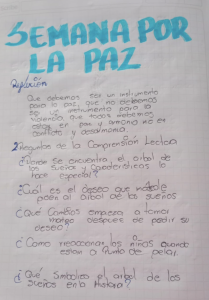 SEMANA POR
LA PAZ
Reflexión
Que debemos ser un instrumento
para la paz, que no debemos
ser un instrumento para la
violencia, que todos debemos
estar en paz y armonia no en
conflicto y desarmonia
2 Preguntas de la Comprensión Lectora
¿Dónde se encuentra el arbol de
los sueños y Caracteristicas lo
hace especial?
¿Cuál es el deseo que
pide al arbol de los sueños
¿Qué Cambios empieza a tomar
mango despues de pedir su
deseo?
¿Como reaccionar los niños cuando
estan a punto de pelar
¿Qué Simboliza el arbol de los
sueños en la historia?